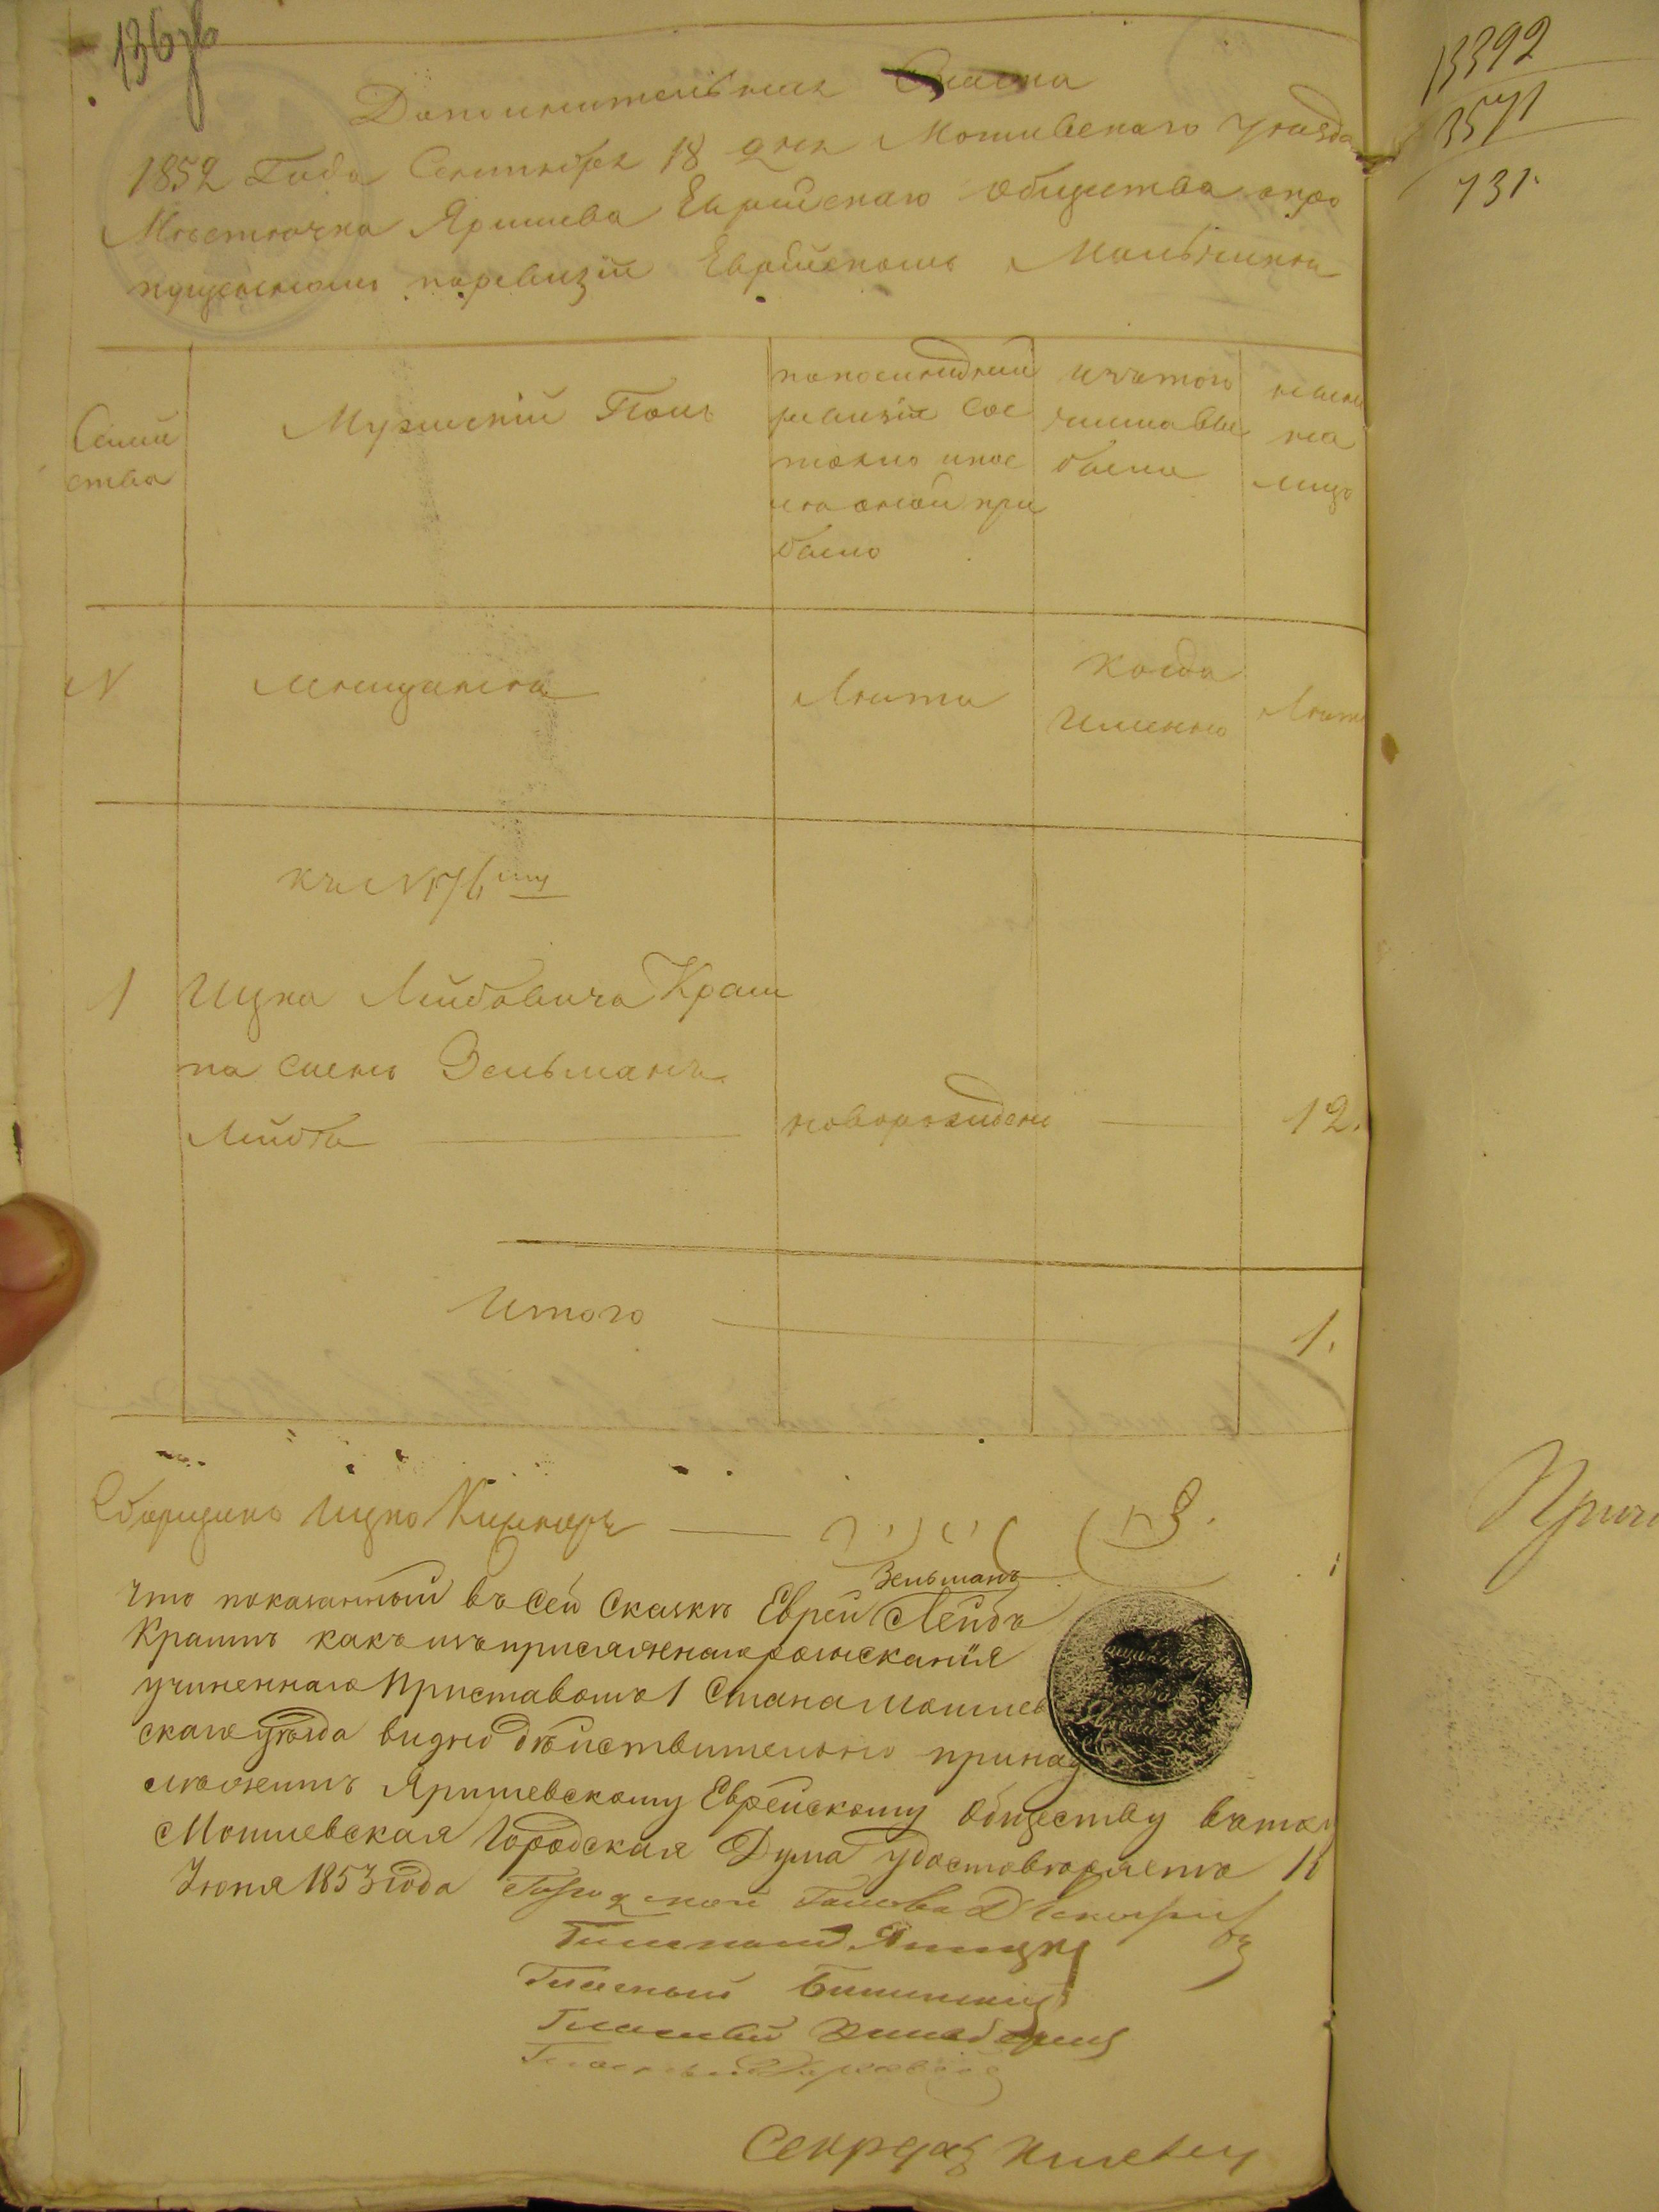 136
Дополнительная Сказка
1852 Года Сентября 18 дня Могилевскаго Уѣзда
Мѣстечка Яришева Еврейскаго общества о про
пущенномъ поревизіи Еврейскомъ Мальчикѣ
Семей
ства
Мужескій Полъ
попослѣдней
ревизіи сос
тояло ипос
лѣ оной при
было
изътого
числа вы
было
нынѣ
на
лицо
N
мещанѣ
Лѣта
Когда
Именно
Лѣта
къ N 176му
1
Ицка Лейбовича Крам
па сынъ Зельманъ
Лейба
новорожденъ
12.
Итого
1.
Сборщикъ Ицко
Что показанный въ сей Сказкѣ Еврей Зельманъ Лейба
Крампъ какъ изъ присяжнаго розысканія
учиненнаго Приставомъ 1 Стана Могилев
скаго уѣзда видно дѣйствительно принад
лѣжитъ Яришевскому Еврейскому Обществу въ томъ
Могилевская Городская Дума удостовѣряетъ 11
Іюня 1853 года Городской Голова
Гласный
Гласный
Гласный
Гласный
Секретарь
13392
3571
131